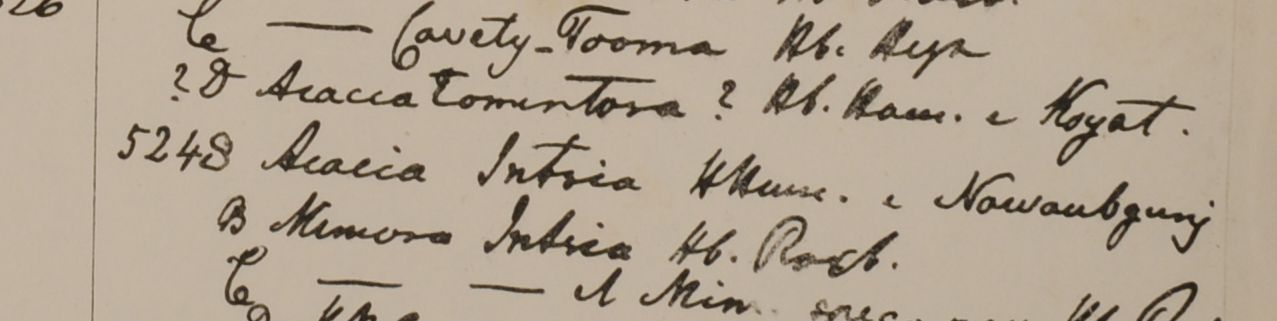 26
C — Cavety-Tooma Hb. Heyn
? D Acacia tomentosa ? Hb. Ham. e Koyat.
5248 Acacia Intsia HHam. e Nawaubgunj
B Mimosa Intsia Hb. Roxb.
C — — A Mim.